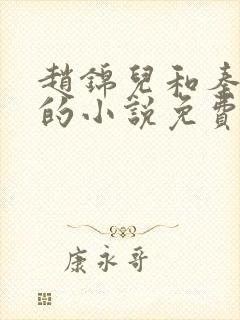 趙錦兒和秦
的小說免費
康永哥